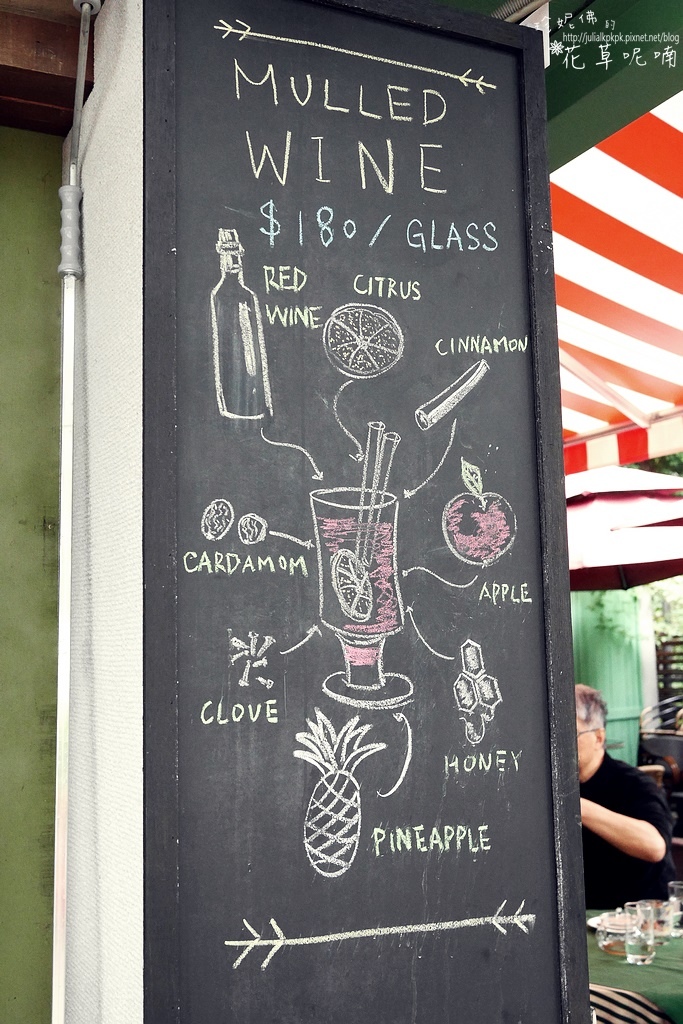 珍妮佛的
http://julialkpkpk.pixnet.net/blog
花草呢喃
MULLED
WINE
$180/GLASS
RED
WINE
CITRUS
CINNAMON
CARDAMOM
APPLE
CLOVE
HONEY
PINEAPPLE